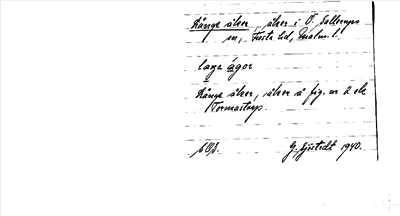 Långe åker, åker i Ö. Sallerups
sn, Torna hd, Malm. l.
laŋə ágər
Långe åker, åker å fig. nr 2 ok
Tormastorp.
G. Sjöstedt 1940.